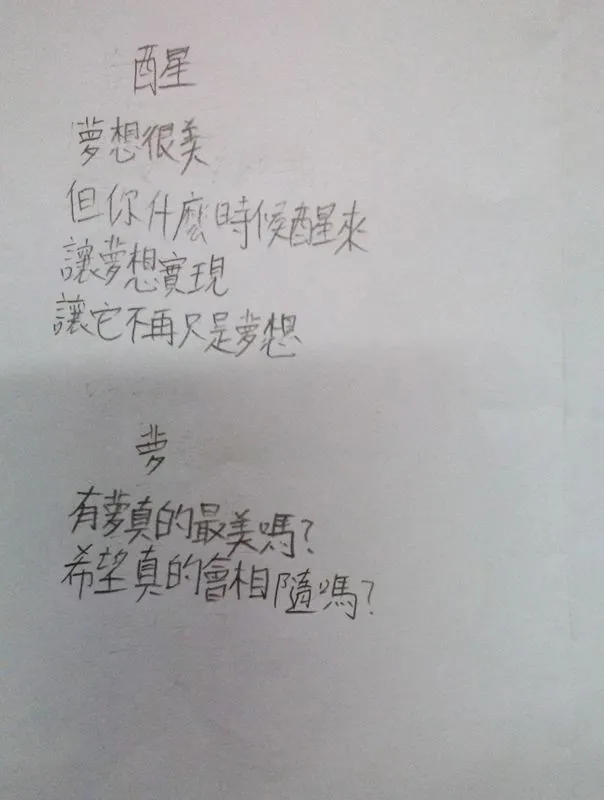 醒
夢想很美
但你什麼時候醒來
讓夢想實現
讓它不再只是夢想
夢
有夢真的最美嗎?
希望真的會相隨嗎?